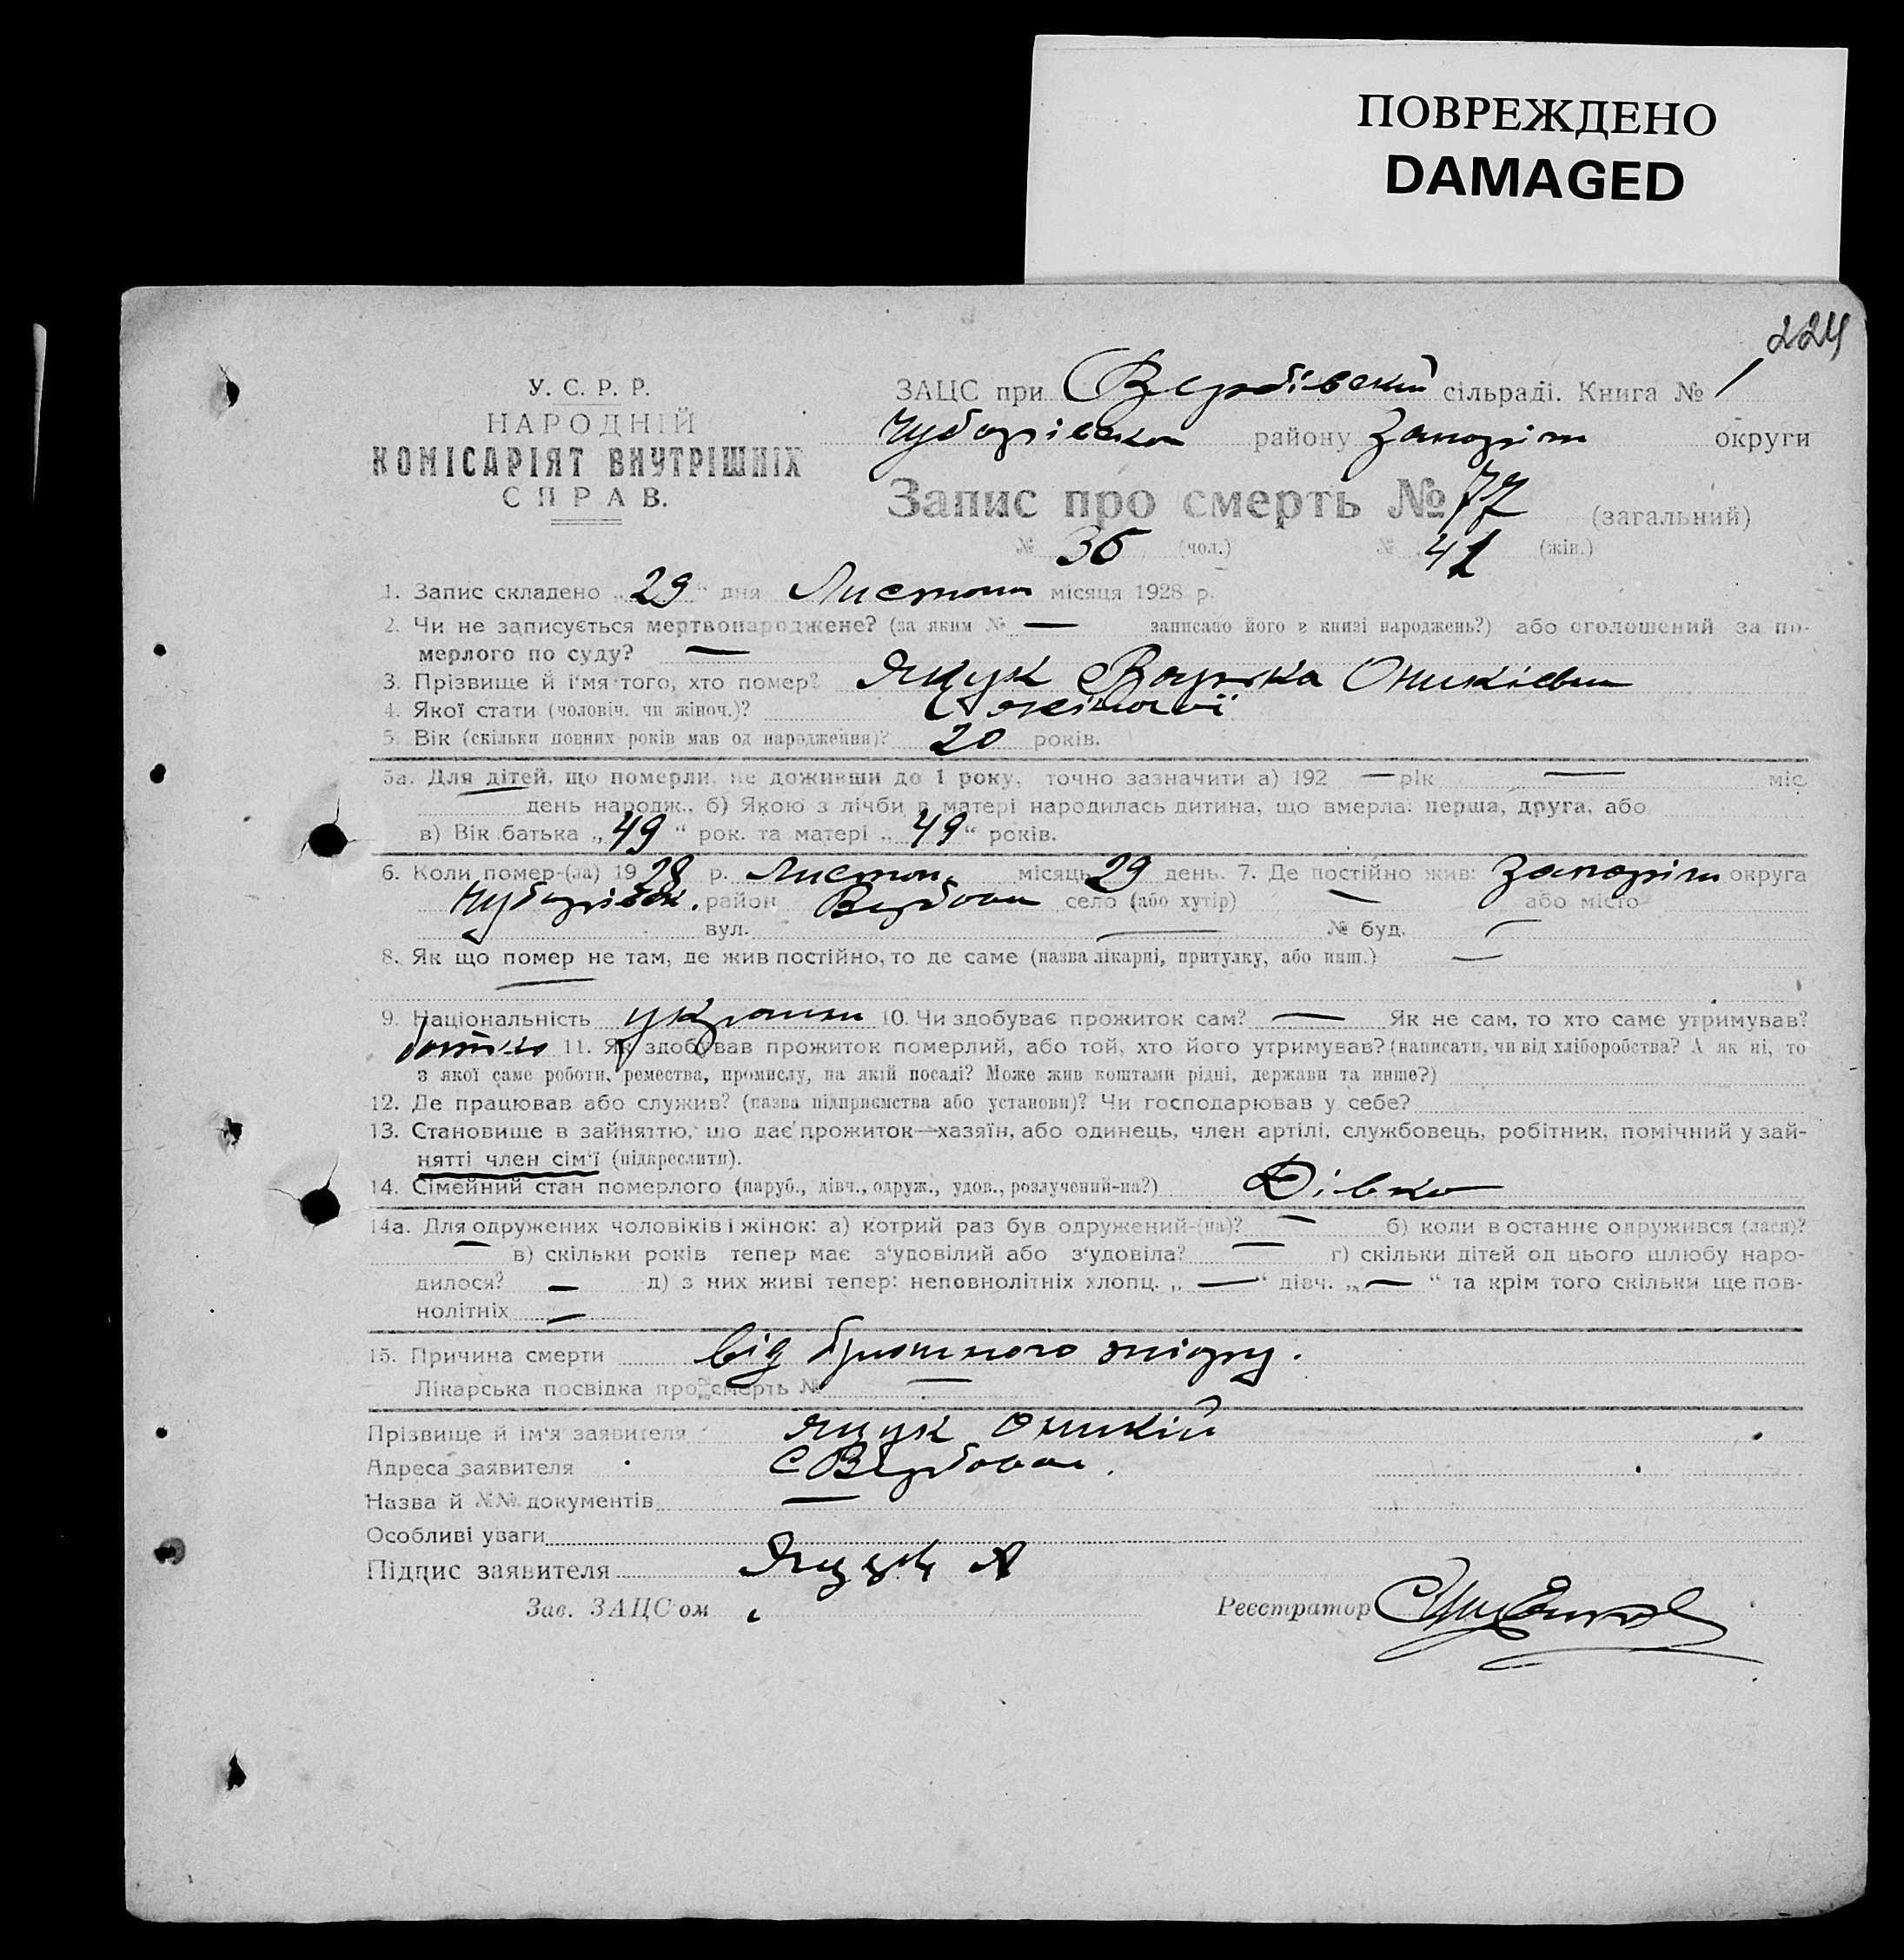 ПОВРЕЖДЕНО
DAMAGED
224
У. С. Р. Р.
НАРОДНІЙ
КОМІСАРІЯТ ВНУТРІШНІХ
СПРАВ.
ЗАЦС при Вербівській сільраді. Книга № 1
Чубарівськ району Запоріж округи
Запис про смерть № 77 (загальний)
№ 36 (чол.) № 41 (жін.)
1. Запис складено „29“ дня Листопа місяця 1928 р.
2. Чи не записується мертвонароджене? (за яким № — записано його в книзі народжень?) або оголошений за по-
мерлого по суду? —
3. Прізвище й і'мя того, хто помер? Яцук Варька Оникіевна
4. Якої стати (чоловіч. чи жіноч.)? жіночої
5. Вік (скільки повних років мав од народження)? 20 років.
5а. Для дітей, що померли, не доживши до 1 року, точно зазначити а) 192 — рік — міс.
день народж., б) Якою з лічби в матері народилась дитина, що вмерла: перша, друга, або
в) Вік батька „49“ рок. та матері „49“ років.
6. Коли помер-(ла) 1928 р. Листоп. місяць 29 день. 7. Де постійно жив: Запоріж округа
Чубарівськ. район Вербова село (або хутір) — або місто
вул. — № буд. —
8. Як що помер не там, де жив постійно, то де саме (назва лікарні, притулку, або инш.) —
—
9. Національність україн 10. Чи здобуває прожиток сам? — Як не сам, то хто саме утримував?
батько 11. Як здобував прожиток померлий, або той, хто його утримував? (написати, чи від хліборобства? А як ні, то
з якої саме роботи, ремества, промислу, на якій посаді? Може жив коштами рідні, держави та инше?)
12. Де працював або служив? (назва підприємства або установи)? Чи господарював у себе?
13. Становище в зайняттю, що дає прожиток—хазяїн, або одинець, член артілі, службовець, робітник, помічний у зай-
нятті член сім'ї (підкреслити).
14. Сімейний стан померлого (паруб., дівч., одруж., удов., розлучений-на?) Дівка
14а. Для одружених чоловіків і жінок: а) котрий раз був одружений-(на)? — б) коли в останнє одружився (лася)?
— в) скільки років тепер має з'удовілий або з'удовіла? — г) скільки дітей од цього шлюбу наро-
дилося? — д) з них живі тепер: неповнолітніх хлопц. „—“ дівч. „—“ та крім того скільки ще пов-
нолітніх —
15. Причина смерти від брюшного тіфу.
Лікарська посвідка про смерть № —
Прізвище й ім'я заявителя Яцук Оникій
Адреса заявителя с Вербова.
Назва й №№ документів —
Особливі уваги
Підпис заявителя Яцук А
Зав. ЗАЦС'ом
Реєстратор